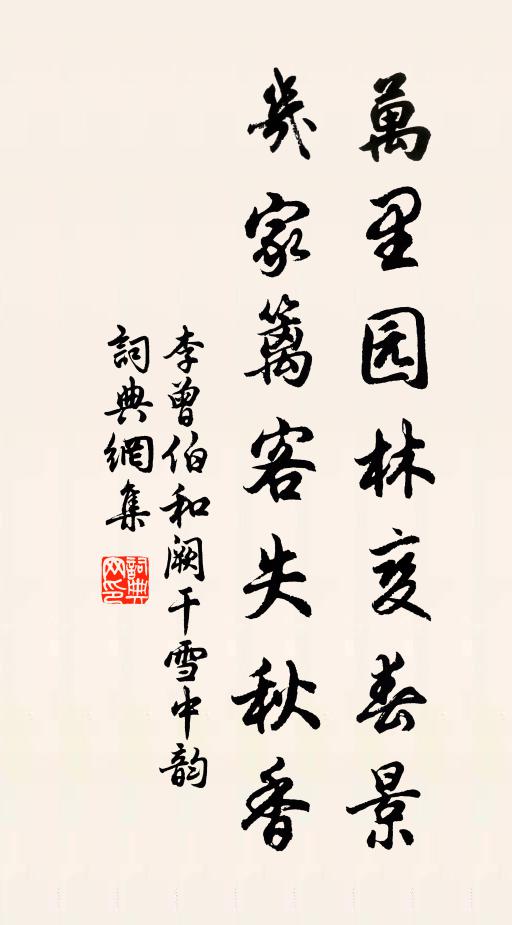 萬里园林变春景
幾家篱客失秋香
李曾伯和阙干雪中韵
詞典網集
詞典
网印